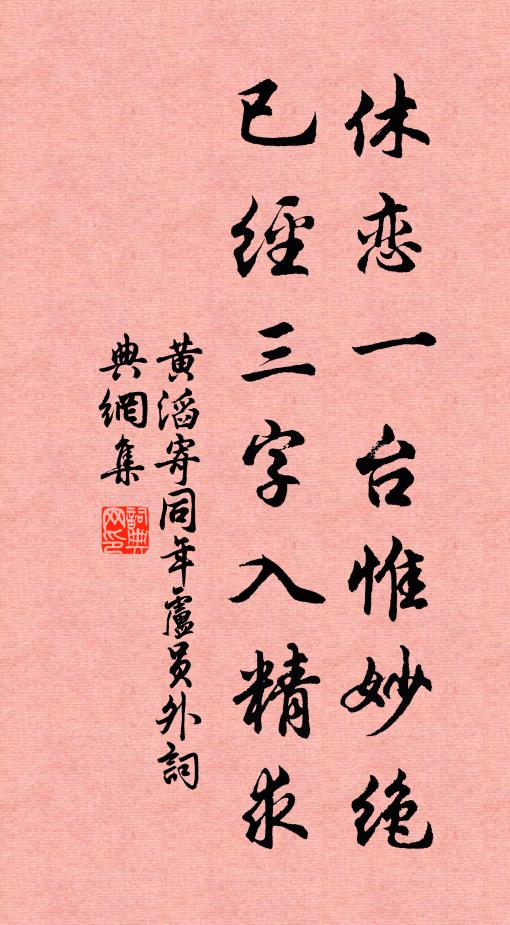 休恋一台惟妙绝
已經三字入精求
黄滔寄同年盧员外詞
典網集
詞典
网印